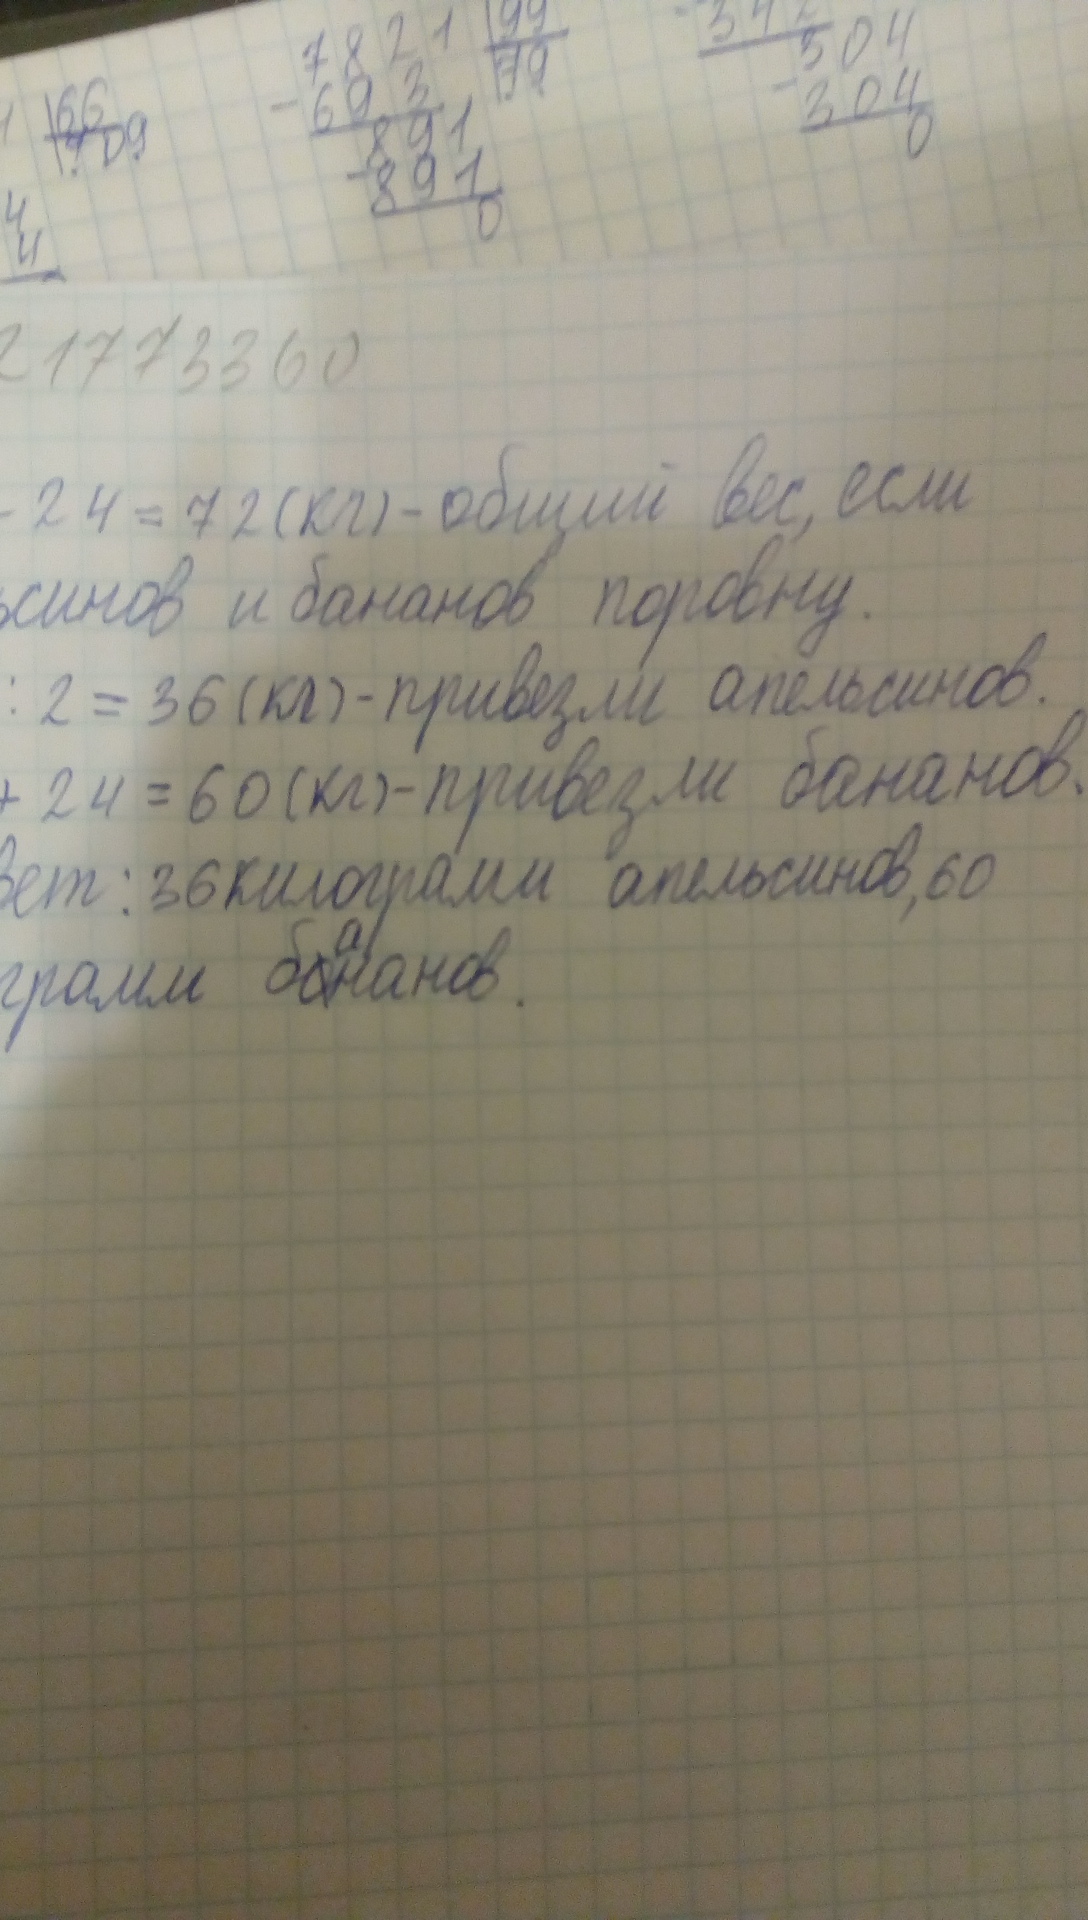 7821 99
693 79
891
891
0
66
709
342
304
304
0
4
4
21773360
- 24 = 72 (кг) - общий вес, если
ьсинов и бананов поровну.
: 2 = 36 (кг) - привезли апельсинов.
+ 24 = 60 (кг) - привезли бананов.
вет: 36 килограмм апельсинов, 60
грамм бананов.